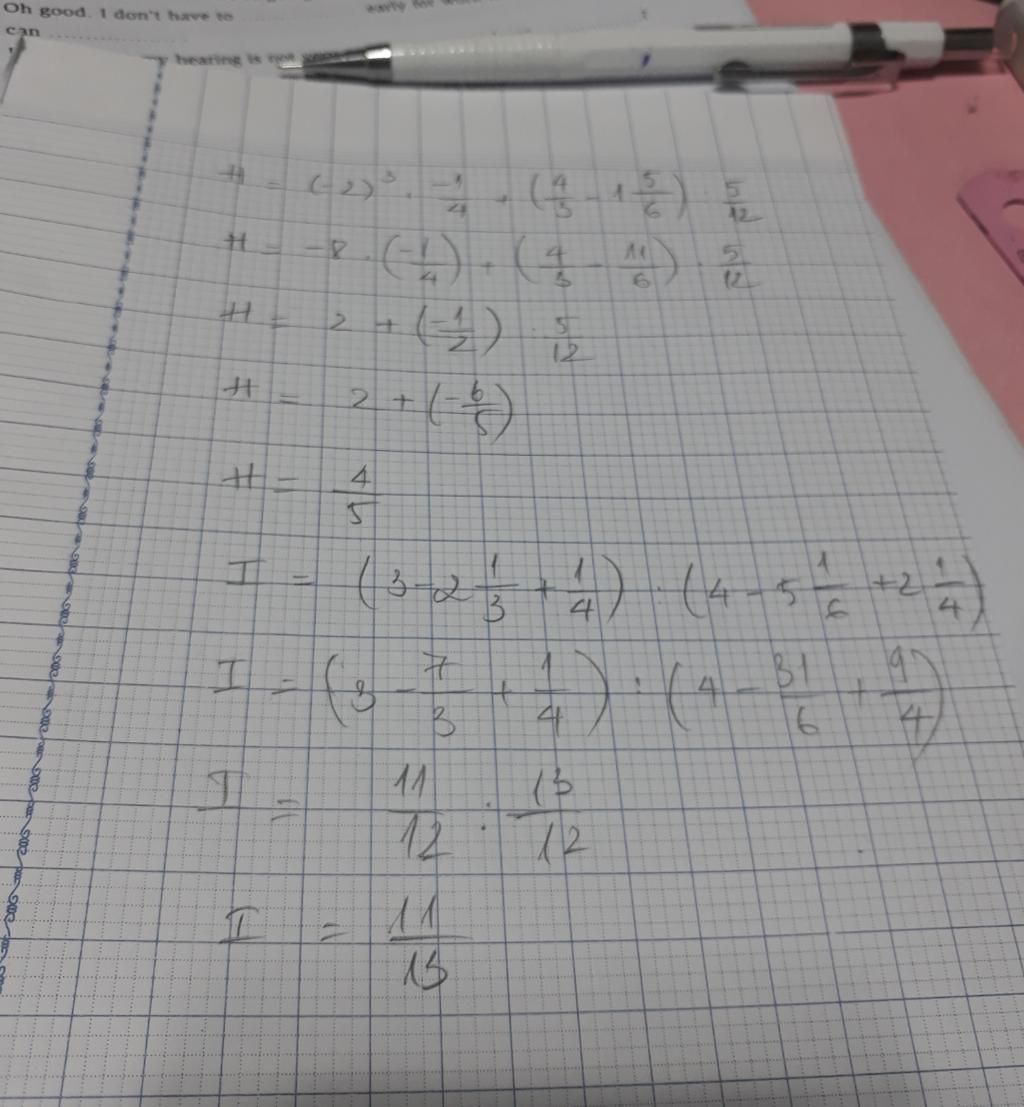 Oh good. I don't have to ............ early for
can ............
hearing is not
H = (-2)³ · -1/4 + (4/3 - 1 5/6) · 5/12
H = -8 · (-1/4) + (4/3 - 11/6) · 5/12
H = 2 + (-1/2) : 5/12
H = 2 + (-6/5)
H = 4/5
I = (3 - 2 1/3 + 1/4) : (4 - 5 1/6 + 2 1/4)
I = (3 - 7/3 + 1/4) : (4 - 31/6 + 9/4)
I = 11/12 : 13/12
I = 11/13